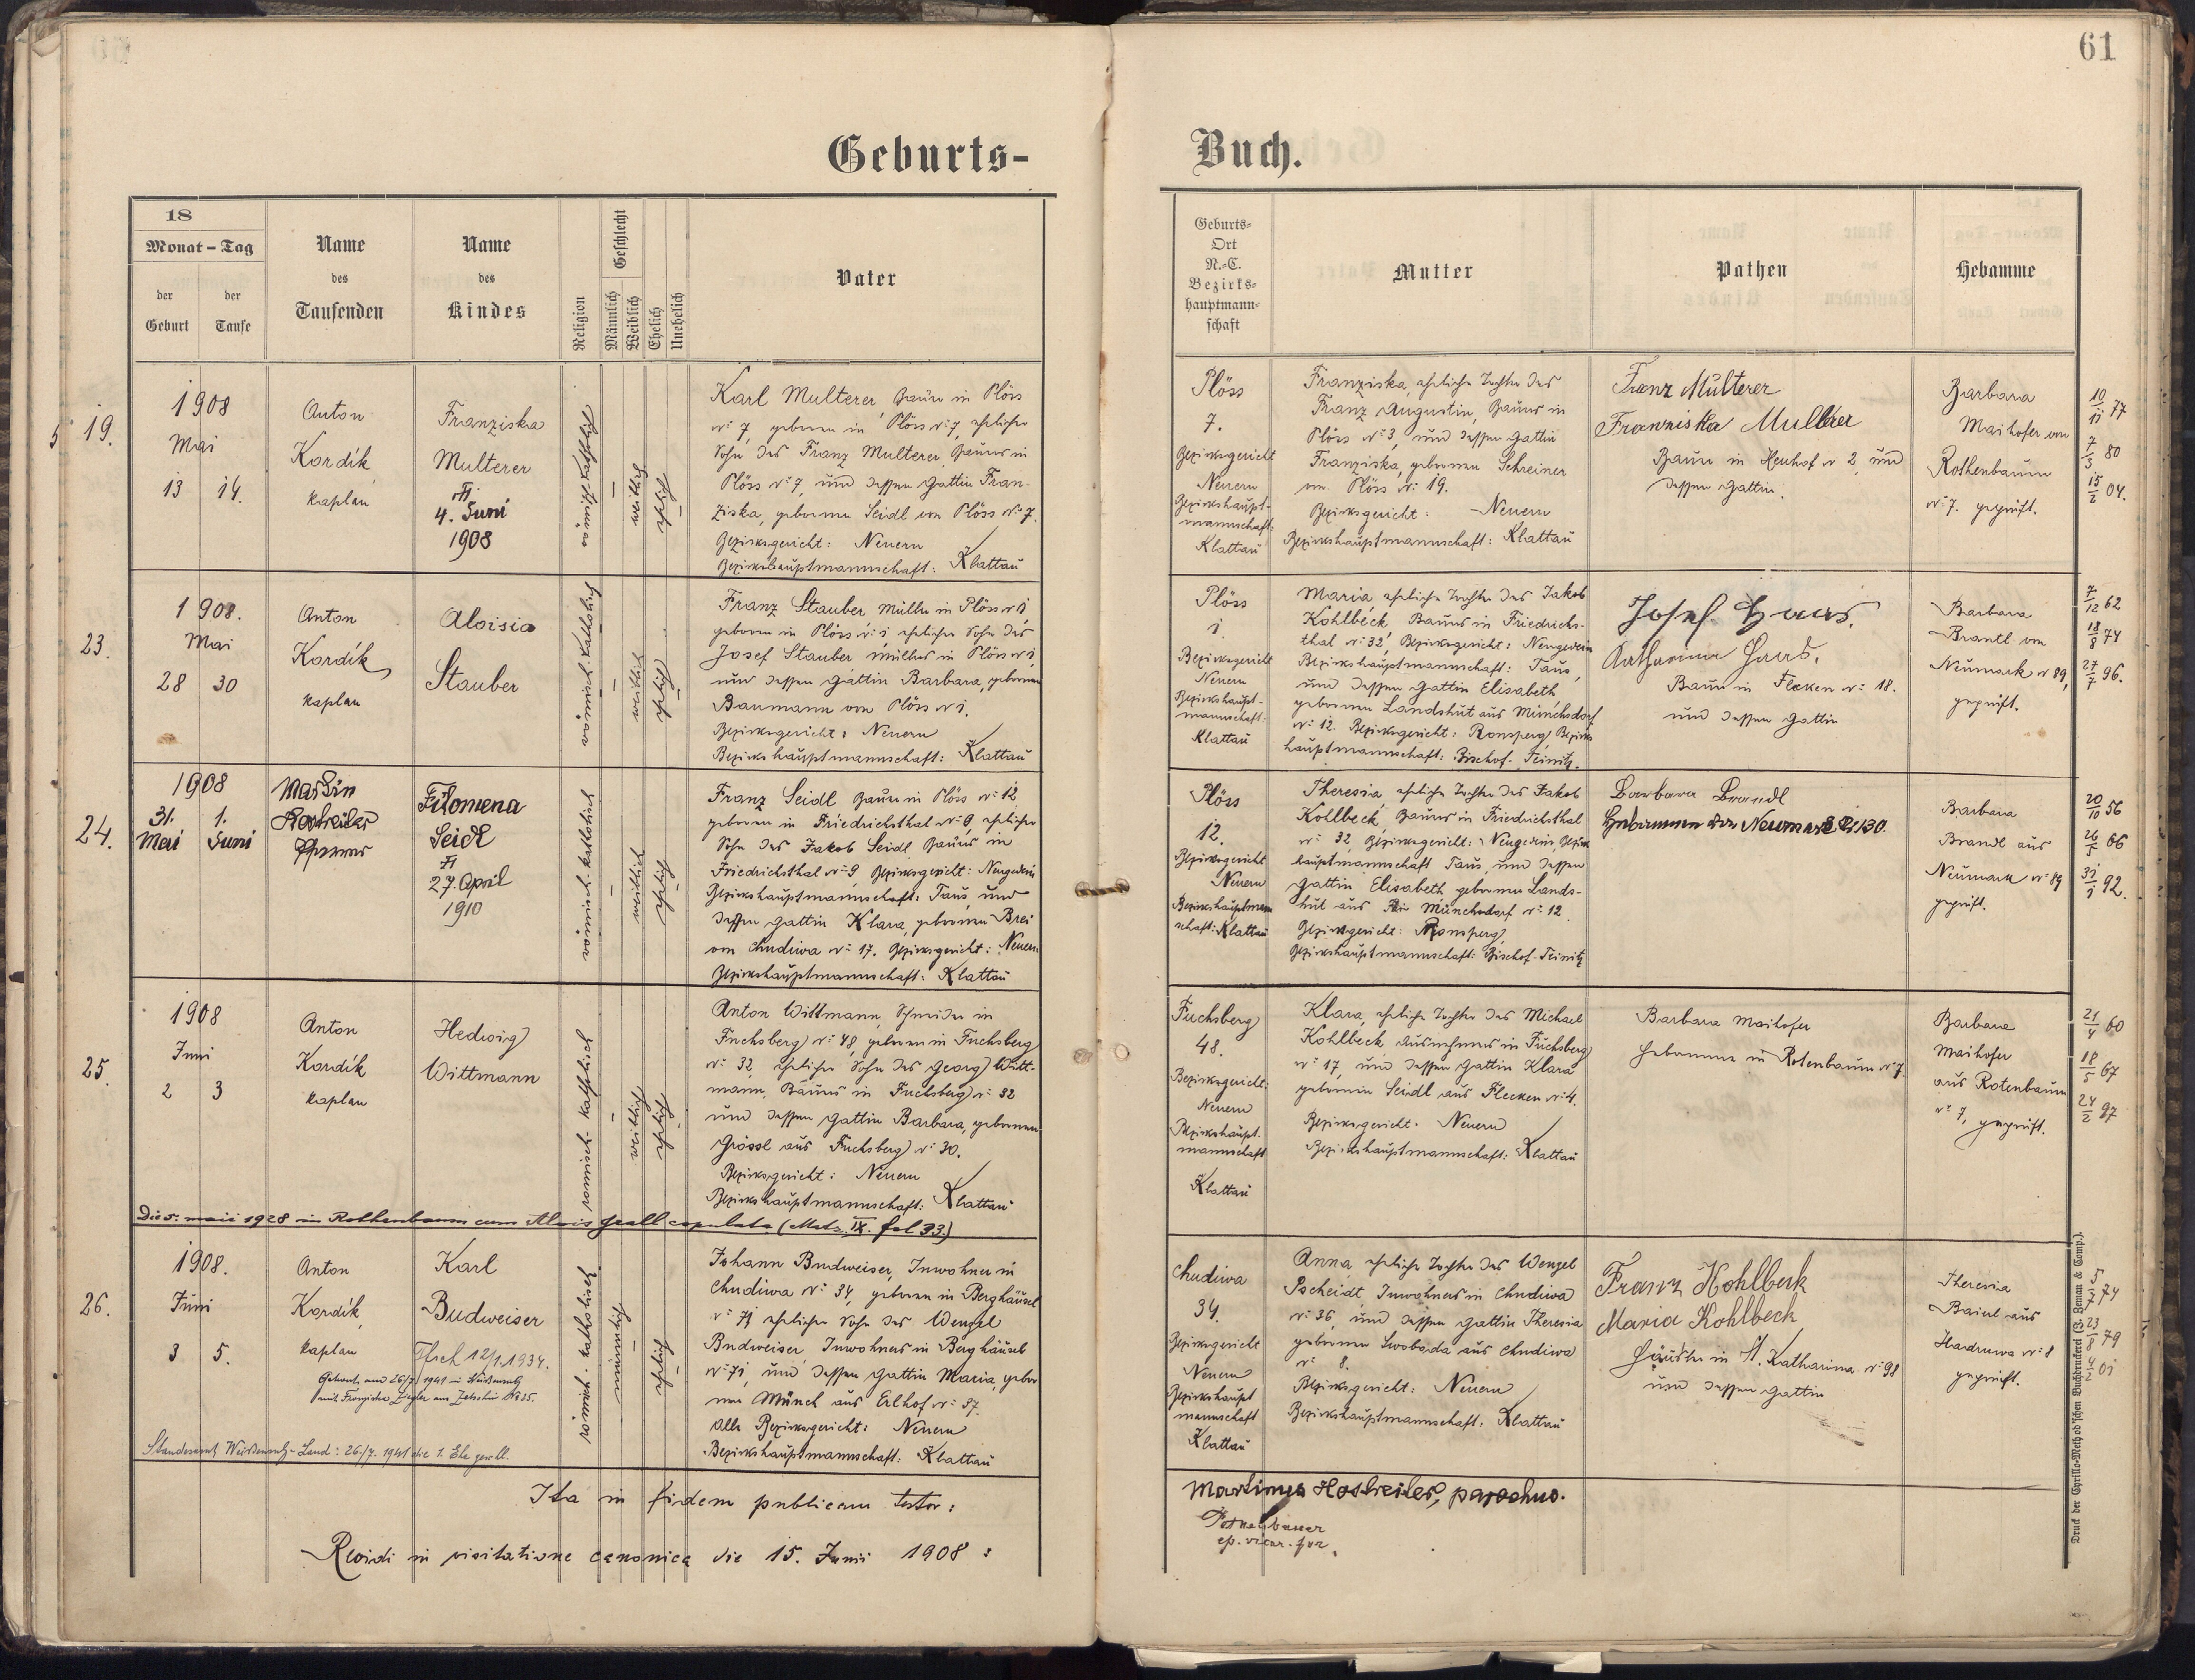 61
Geburts-
Buch.
18
Monat - Tag
der
Geburt
der
Taufe
Name
des
Taufenden
Name
des
Kindes
Religion
Geschlecht
Männlich
Weiblich
Ehelich
Unehelich
Vater
Geburts-
Ort
N.-C.
Bezirks-
hauptmann-
schaft
Mutter
Pathen
Hebamme
19.
1908
Mai
13 14.
Anton
Kordík
Kaplan
Franziska
Multerer
4. Juni
1908
römisch-katholisch
weiblich
ehelich
Karl Multerer, Bauer in Plöss
N: 7, geboren in Plöss N: 7, ehelicher
Sohn des Franz Multerer, Bauers in
Plöss N: 7, und dessen Gattin Fran-
ziska, geborenen Seidl von Plöss N: 7.
Bezirksgericht: Neuern
Bezirkshauptmannschaft: Klattau
Plöss
7.
Bezirksgericht
Neuern
Bezirkshaupt-
mannschaft:
Klattau
Franziska, eheliche Tochter des
Franz Augustin, Bauers in
Plöss N: 3, und dessen Gattin
Franziska, geborenen Schreiner
von Plöss N: 19.
Bezirksgericht: Neuern
Bezirkshauptmannschaft: Klattau
Franz Multerer
Franziska Multerer
Bauer in Heuhof N 2, und
dessen Gattin.
Barbara
Maihofer von
Rothenbaum
N: 7. geprüft.
10/11 77
7/3 80
15/2 04.
23.
1908.
Mai
28 30
Anton
Kordík
Kaplan
Aloisia
Stauber
römisch-katholisch
weiblich
ehelich
Franz Stauber, Müller in Plöss N 1,
geboren in Plöss N: 1, ehelicher Sohn des
Josef Stauber, Müllers in Plöss N 1,
und dessen Gattin Barbara, geborenen
Baumann von Plöss N 1.
Bezirksgericht: Neuern
Bezirkshauptmannschaft: Klattau
Plöss
1.
Bezirksgericht
Neuern
Bezirkshaupt-
mannschaft:
Klattau
Maria, eheliche Tochter des Jakob
Kohlbeck, Bauers in Friedrichs-
thal N: 32, Bezirksgericht: Neugedein
Bezirkshauptmannschaft: Taus,
und dessen Gattin Elisabeth
geborenen Landshut aus Münchsdorf
N: 12. Bezirksgericht: Ronsperg, Bezirks
hauptmannschaft: Bischof-Teinitz.
Josef Haas.
Katharina Haas.
Bauer in Flecken N: 18.
und dessen Gattin
Barbara
Brantl von
Neumark N 89,
geprüft.
7/12 62
18/8 74
27/7 96.
24.
1908
31. 1.
Mai Juni
Martin
Hostreiter
Pfarrer
Filomena
Seidl
27. April
1910
römisch-katholisch
weiblich
ehelich
Franz Seidl, Bauer in Plöss N: 12
geboren in Friedrichsthal N: 9, ehelicher
Sohn des Jakob Seidl, Bauers in
Friedrichsthal N: 9 Bezirksgericht: Neugedein
Bezirkshauptmannschaft: Taus, und
dessen Gattin Klara, geborenen Brei
von Chudiwa N: 17. Bezirksgericht: Neuern
Bezirkshauptmannschaft: Klattau
Plöss
12.
Bezirksgericht
Neuern
Bezirkshauptmann
schaft: Klattau
Theresia, eheliche Tochter des Jakob
Kohlbeck, Bauers in Friedrichsthal
N: 32, Bezirksgericht: Neugedein, Bezirks
hauptmannschaft Taus, und dessen
Gattin Elisabeth geborenen Lands-
hut aus Münchsdorf N: 12.
Bezirksgericht: Ronsperg,
Bezirkshauptmannschaft: Bischof-Teinitz
Barbara Brandl
Hebamme
Barbara
Brandl aus
Neumark N: 89
geprüft.
20/10 56
26/5 66
31/1 92.
25.
1908
Juni
2 3
Anton
Kordík
Kaplan
Hedwig
Wittmann
römisch-katholisch
weiblich
ehelich
Anton Wittmann, Schneider in
Fuchsberg N: 48, geboren in Fuchsberg
N: 32, ehelicher Sohn des Georg Witt-
mann, Bauers in Fuchsberg N: 32
und dessen Gattin Barbara, geborenen
Grössl aus Fuchsberg N: 30.
Bezirksgericht: Neuern
Bezirkshauptmannschaft: Klattau
Die 5. maii 1928 in Rothenbaum cum Alois Grall copulata (Matr. IX. fol 33.)
Fuchsberg
48.
Bezirksgericht:
Neuern
Bezirkshaupt-
mannschaft
Klattau
Klara, eheliche Tochter des Michael
Kohlbeck, Ausnehmers in Fuchsberg
N: 17, und dessen Gattin Klara
geborenen Seidl aus Flecken N: 4.
Bezirksgericht: Neuern
Bezirkshauptmannschaft: Klattau
Barbara Maihofer
Hebamme in Rotenbaum N: 7
Barbara
Maihofer
aus Rotenbaum
N: 7, geprüft.
21/4 60
18/5 67
24/2 97
26.
1908.
Juni
3 5.
Anton
Kordík,
Kaplan
Karl
Budweiser
12/1. 1934.
Getraut am 26/7 1941 in
Standesamt
26./7. 1941 die 1. Ehe
römisch-katholisch
männlich
ehelich
Johann Budweiser, Inwohner in
Chudiwa N: 34, geboren in Berghäuseln
N: 71 ehelicher Sohn des Wenzel
Budweiser, Inwohners in Berghäuseln
N: 71, und dessen Gattin Maria, gebor
nen Münch aus Erlhof N: 37.
Alle Bezirksgericht: Neuern
Bezirkshauptmannschaft: Klattau
Chudiwa
34.
Bezirksgericht
Neuern
Bezirkshaupt
mannschaft
Klattau
Anna, eheliche Tochter des Wenzel
Pscheidt, Inwohners in Chudiwa
N: 36, und dessen Gattin Theresia
geborenen Swoboda aus Chudiwa
N: 8.
Bezirksgericht: Neuern
Bezirkshauptmannschaft: Klattau
Franz Kohlbeck
Maria Kohlbeck
Häusler in St. Katharina N: 98
und dessen Gattin
Theresia
Baierl aus
Hadruwa N: 8
geprüft.
5/7 74
23/8 79
4/2 01
Ita in fidem publicam testor:
Martinus Hostreiter, parochus.
Revidi in visitatione canonica die 15. Junii 1908:
ep. vicar. for.
Druck der Cyrillo-Method'schen Buchdruckerei (G. Zeman & Comp.).